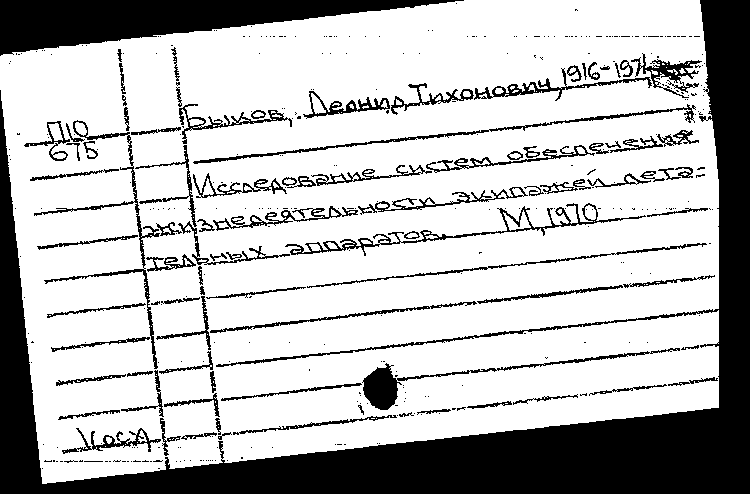 Быков, Леонид Тихонович, 1916-1971
П10
67Б
Исследование систем обеспечения
жизнедеятельности экипажей лета-
тельных аппаратов. М, 1970